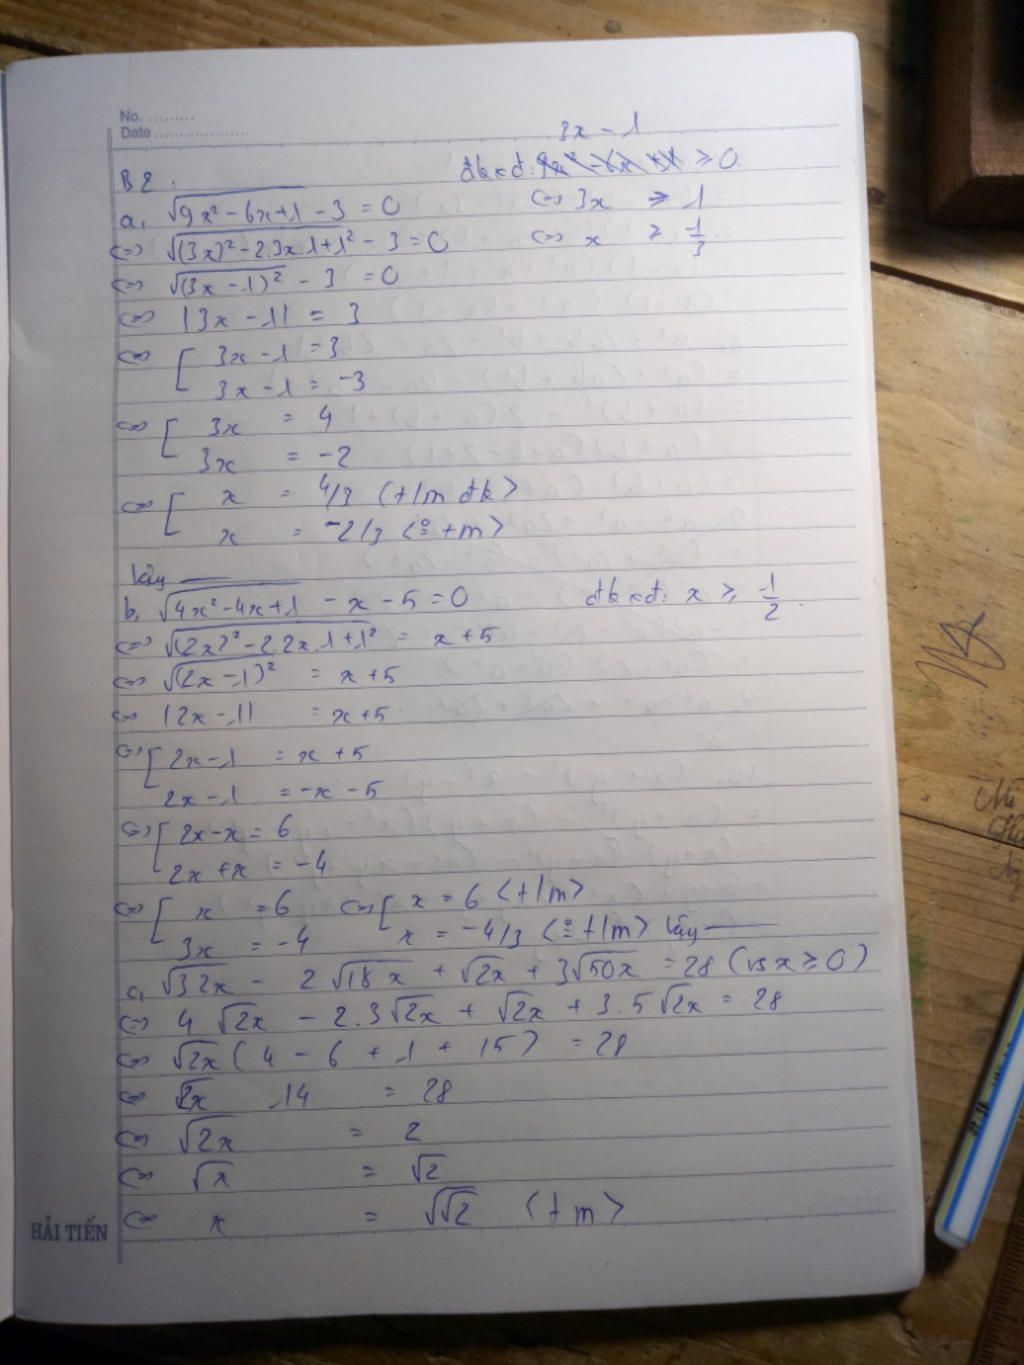 No. ..........
Date ....................
3x - 1
B2.
đkxđ: ≥ 0.
a, √(9x² - 6x + 1) - 3 = 0
<=> 3x ≥ 1
<=> √((3x)² - 2.3x.1 + 1²) - 3 = 0
<=> x ≥ 1/3
<=> √((3x - 1)²) - 3 = 0
<=> |3x - 1| = 3
<=> [ 3x - 1 = 3
3x - 1 = -3
<=> [ 3x = 4
3x = -2
<=> [ x = 4/3 (t/m đk)
x = -2/3 (o t/m)
Vậy
b, √(4x² - 4x + 1) - x - 5 = 0
đkxđ: x ≥ 1/2.
<=> √((2x)² - 2.2x.1 + 1²) = x + 5
<=> √((2x - 1)²) = x + 5
<=> |2x - 1| = x + 5
<=> [ 2x - 1 = x + 5
2x - 1 = -x - 5
<=> [ 2x - x = 6
2x + x = -4
<=> [ x = 6 <=> [ x = 6 (t/m)
3x = -4 x = -4/3 (o t/m) Vậy
c, √32x - 2√18x + √2x + 3√50x = 28 (vs x ≥ 0)
<=> 4√2x - 2.3√2x + √2x + 3.5√2x = 28
<=> √2x (4 - 6 + 1 + 15) = 28
<=> √2x .14 = 28
<=> √2x = 2
<=> √x = √2
<=> x = √√2 (tm)
HẢI TIẾN